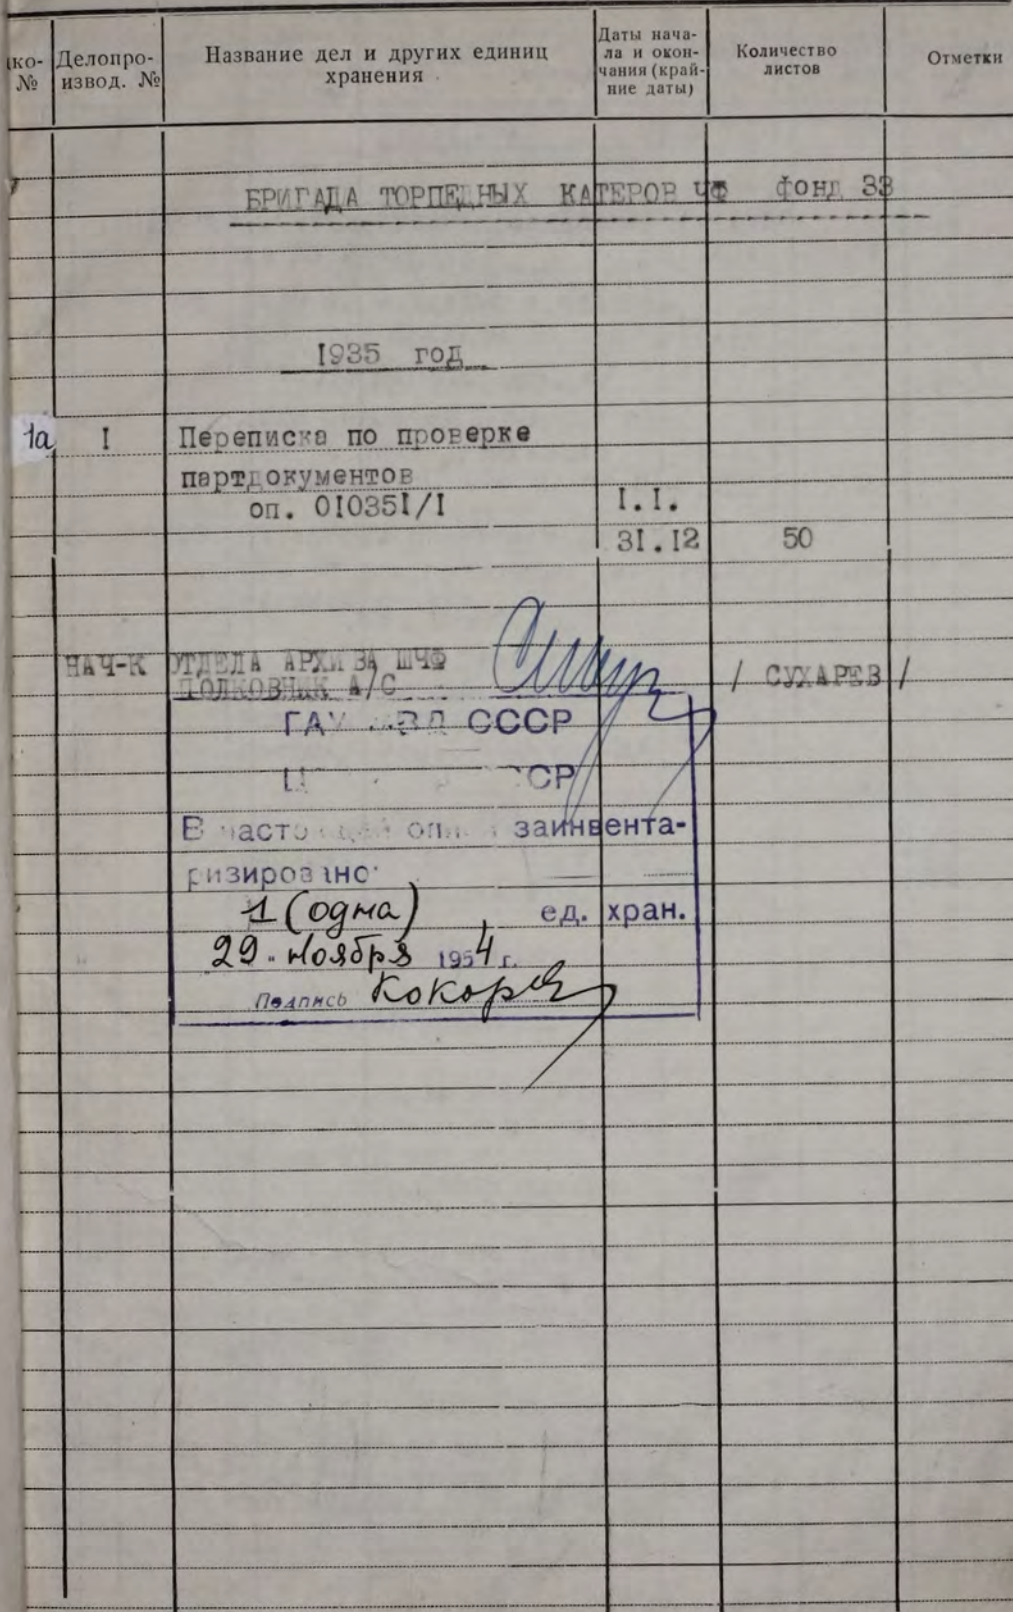 ко- №
Делопро-
извод. №
Название дел и других единиц
хранения
Даты нача-
ла и окон-
чания (край-
ние даты)
Количество
листов
Отметки
БРИГАДА ТОРПЕДНЫХ КАТЕРОВ ЧФ фонд 33
I935 год
1а I Переписка по проверке
партдокументов
оп. 0I035I/I I.I.
3I.I2 50
НАЧ-К ОТДЕЛА АРХИВА ШЧФ
ПОЛКОВНИК А/С / СУХАРЕВ /
ГАУ МВД СССР
В настоящей описи заинвента-
ризировано
1 (одна) ед. хран.
29 " ноября 1954 г.
Подпись Кокорев